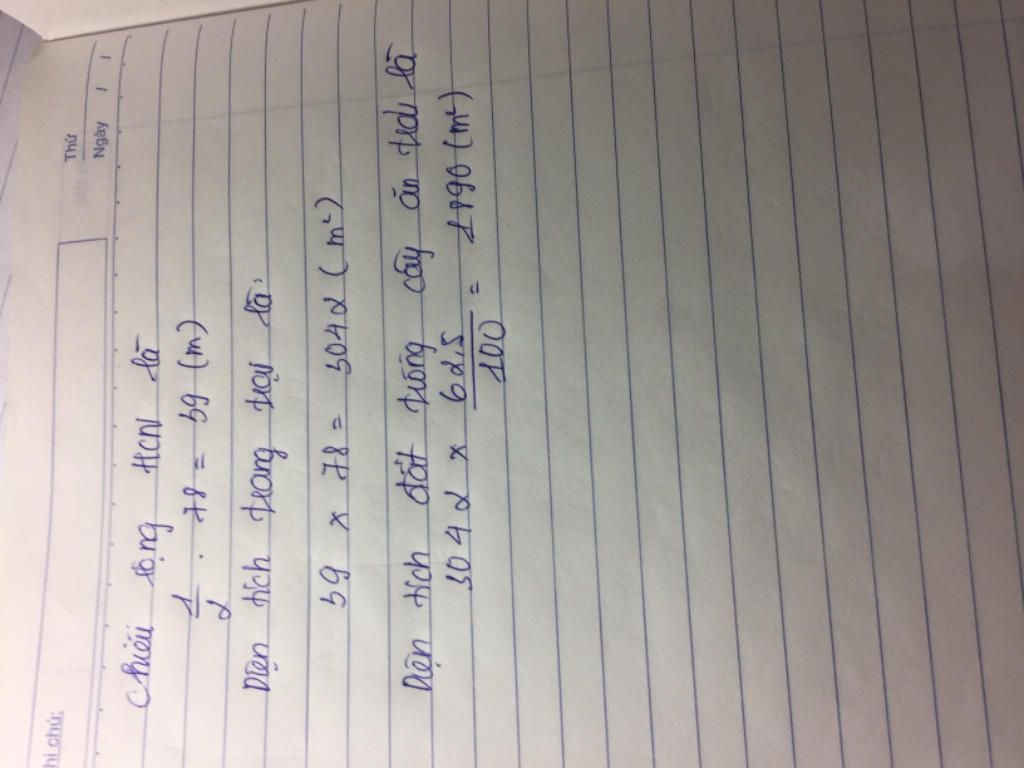 Thứ
Ngày / /
hi chú:
Chiều rộng HCN là
1/2 . 78 = 39 (m)
Diện tích trang trại là:
39 x 78 = 3042 (m²)
Diện tích đất trồng cây ăn trái là
3042 x 62,5/100 = 1890 (m²)